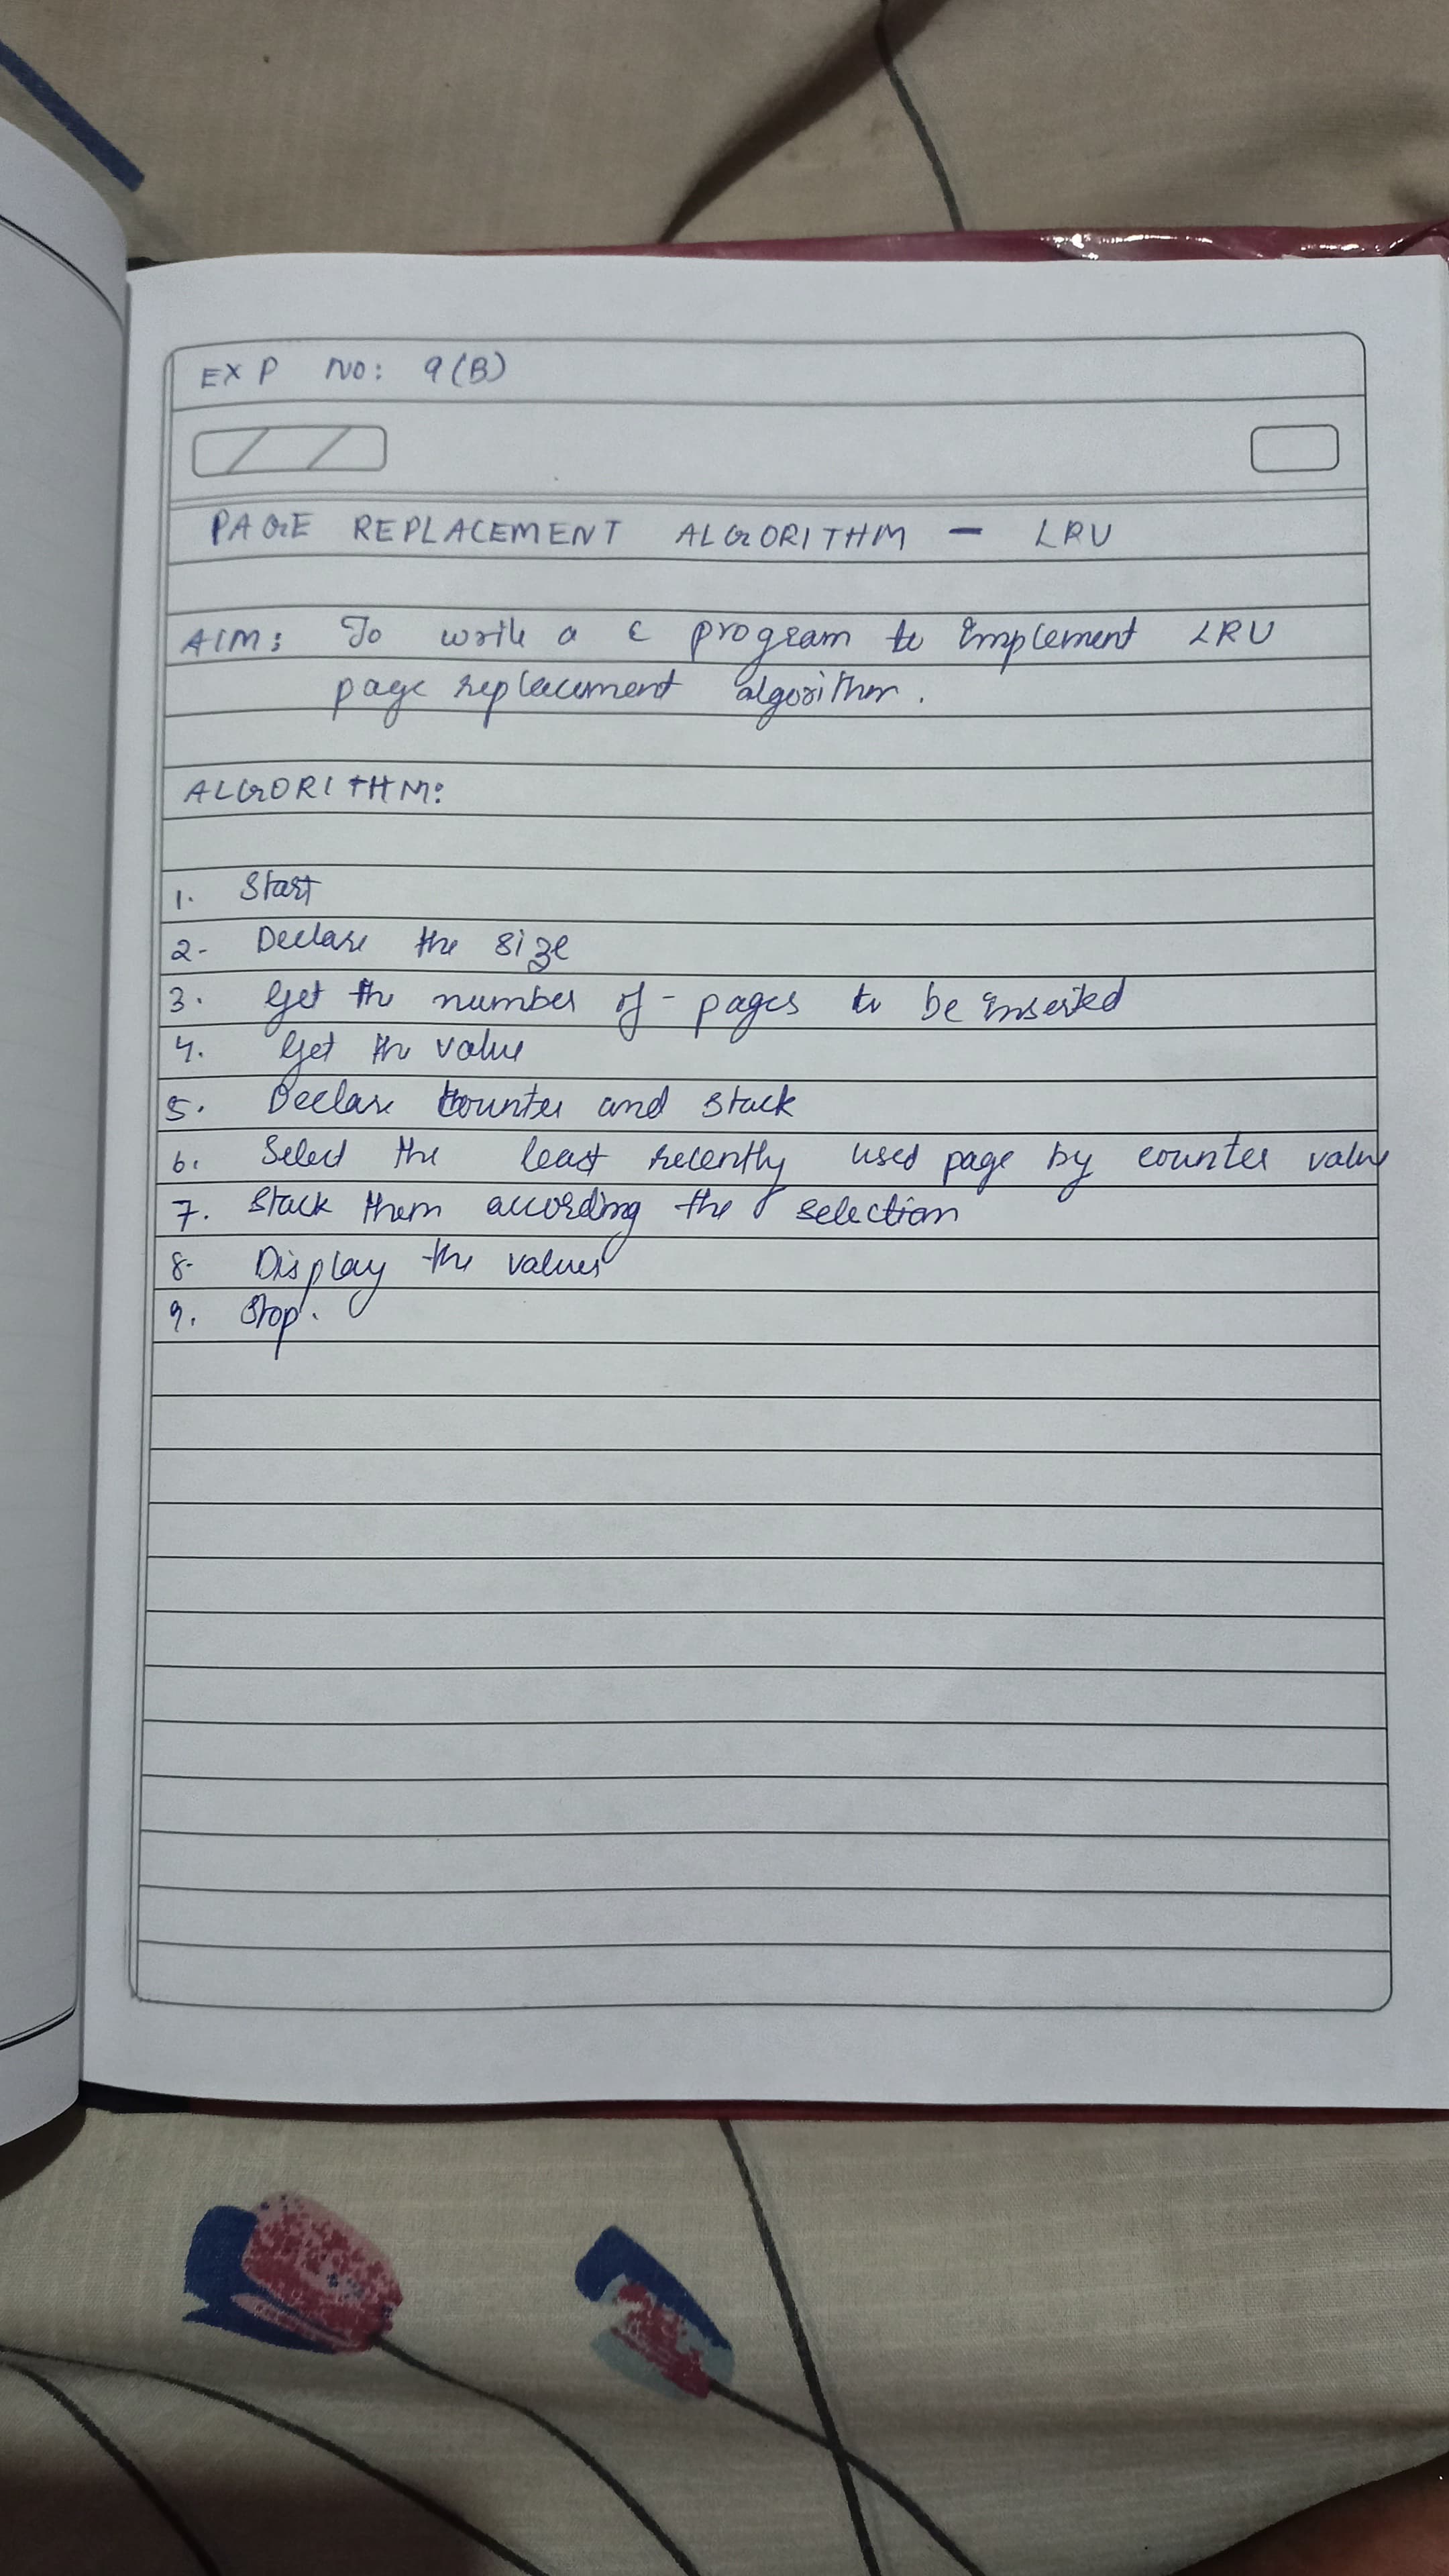 EXP NO: 9(B)
PAGE REPLACEMENT ALGORITHM - LRU
AIM: To write a C program to implement LRU
page replacement algorithm.
ALGORITHM:
1. Start
2. Declare the size
3. Get the number of pages to be inserted
4. Get the value
5. Declare counter and stack
6. Select the least recently used page by counter value
7. Stack them according the selection
8. Display the values
9. Stop.